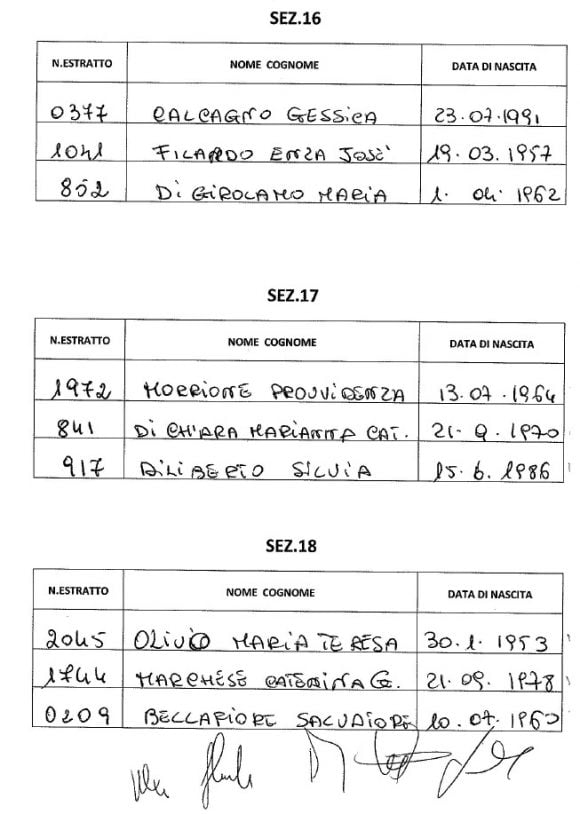 SEZ.16
N.ESTRATTO NOME COGNOME DATA DI NASCITA
0377 CALCAGNO GESSICA 23.07.1991
1041 FILARDO ENZA JOSE' 19.03.1957
852 Di GIROLAMO MARIA 1. 04. 1962
SEZ.17
N.ESTRATTO NOME COGNOME DATA DI NASCITA
1972 MORRIONE PROVVIDENZA 13.07.1964
841 Di CHIARA MARIANNA CAT. 21. 9. 1970
917 DILIBERTO SILVIA 15. 6. 1986
SEZ.18
N.ESTRATTO NOME COGNOME DATA DI NASCITA
2045 OLIVIO MARIA TERESA 30.1.1953
1744 MARCHESE CATERINA G. 21.09.1978
0209 BELLAFIORE SALVATORE 10.07.1960